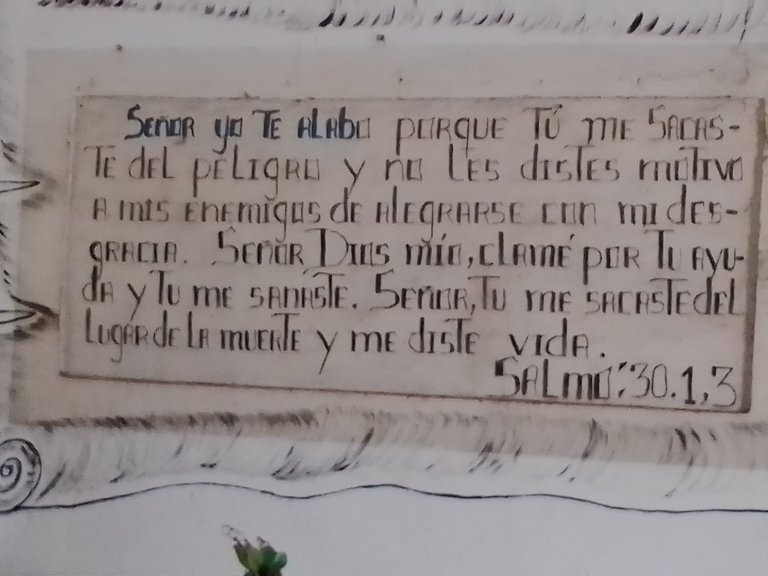 Señor yo TE ALABO PORQUE TÚ ME SACAS-
TE dEL PELIGRO y NO LES dISTES MOTIVO
A MIS ENEMIGOS dE ALEGRARSE CON MI dES-
GRACIA. SEÑOR DIOS MÍO, CLAMÉ POR TU AYU-
dA y TU ME SANASTE. SEÑOR, TU ME SACASTE dEL
LUGAR dE LA MUERTE y ME dISTE VIdA.
SALMO:30.1,3